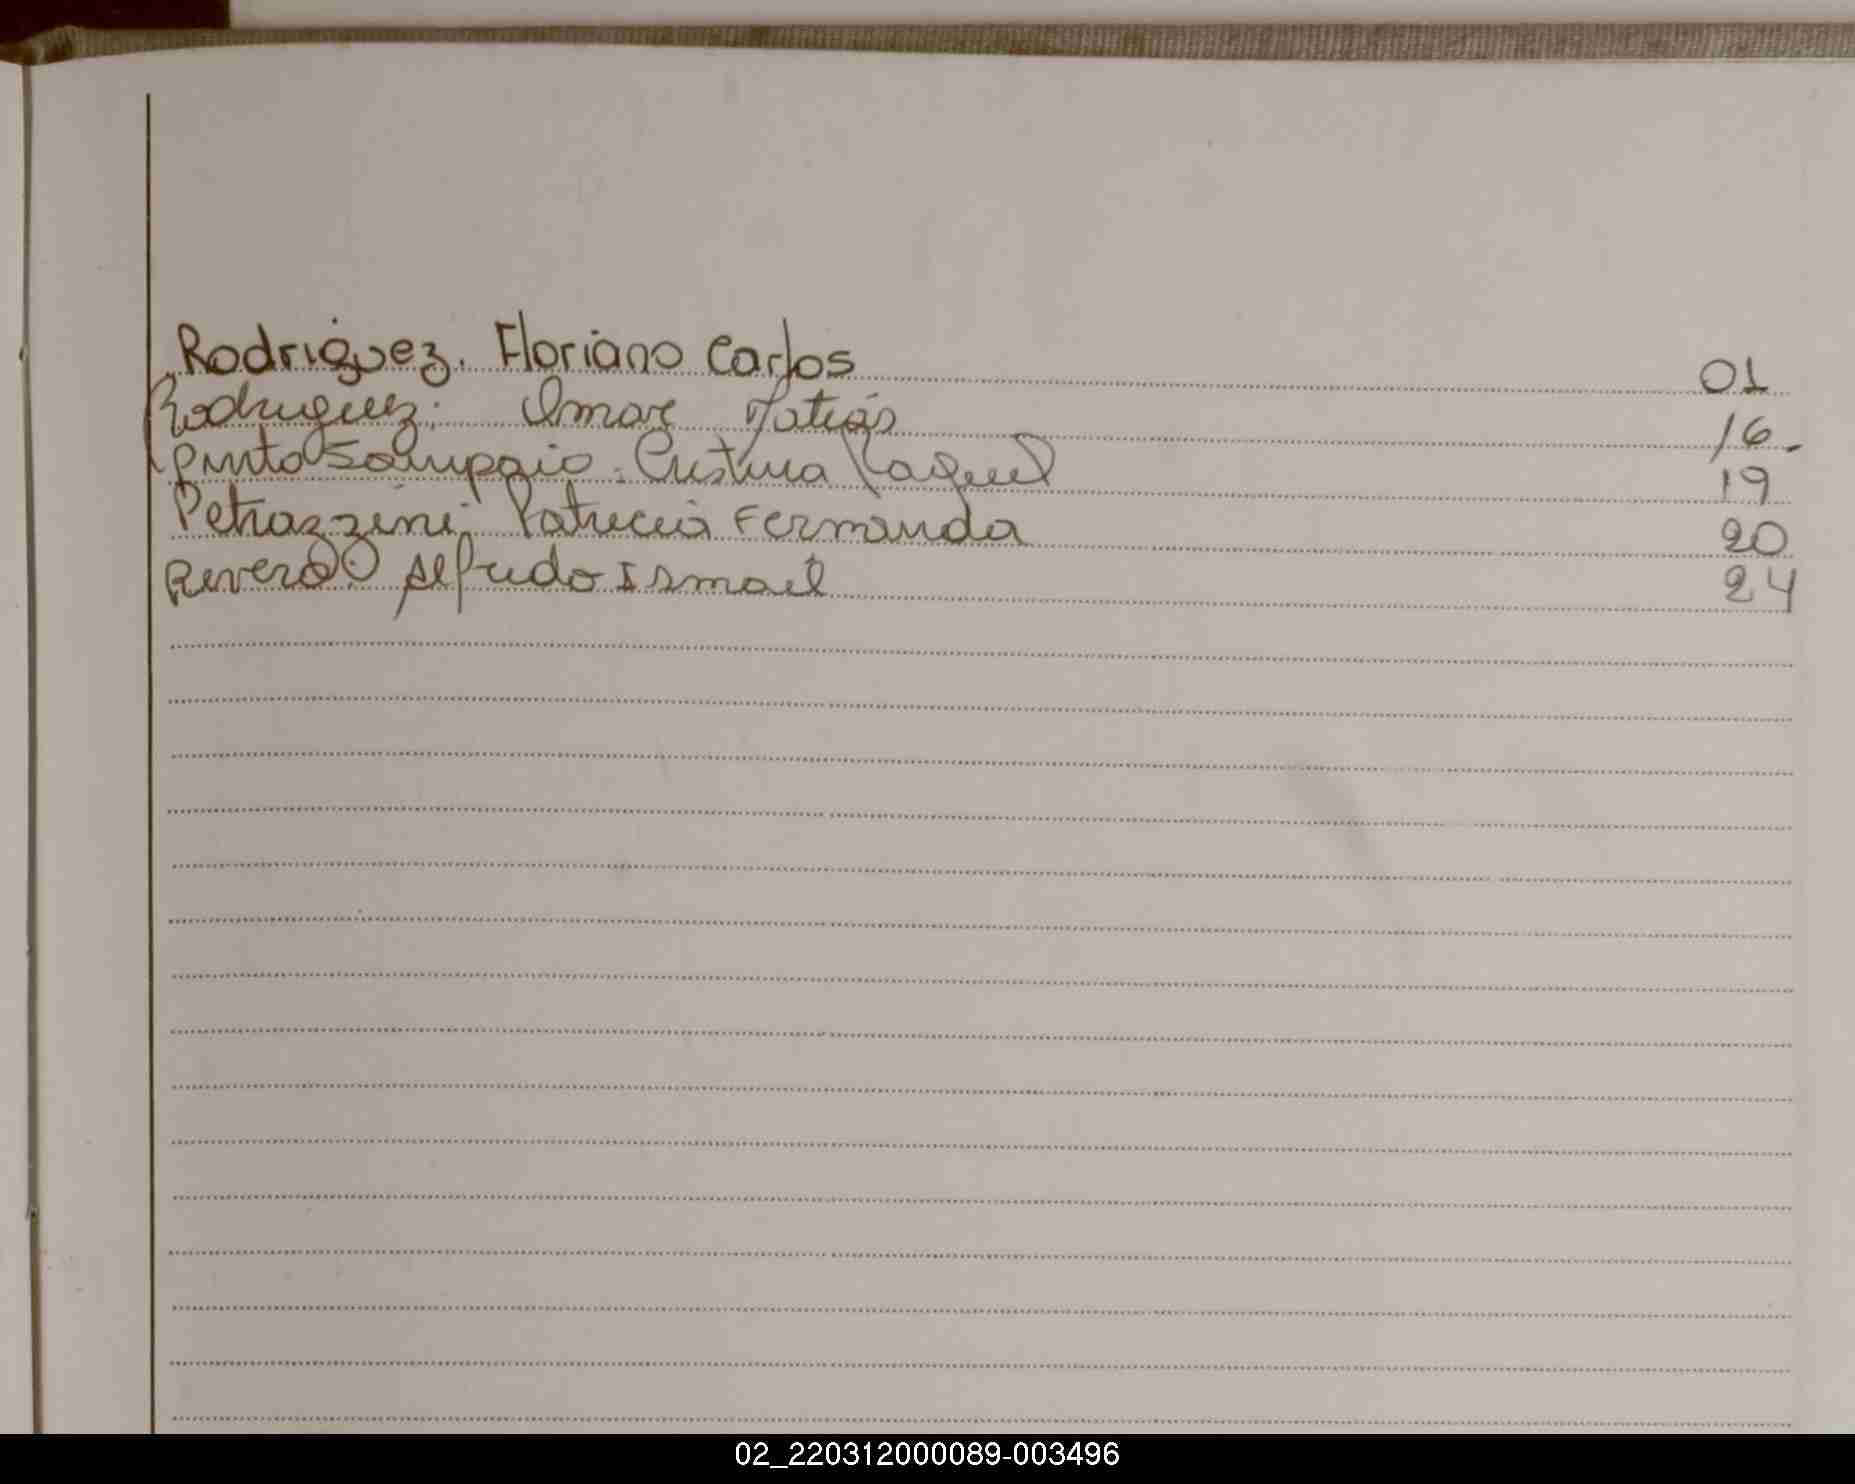 Rodriguez. Floriano Carlos 01
Rodriguez: Omar Matias 16
Pinto Sampaio: Cristina Raquel 19
Petrazzini: Patricia Fernanda 20
Rivero: Alfredo Ismael 24
02_220312000089-003496